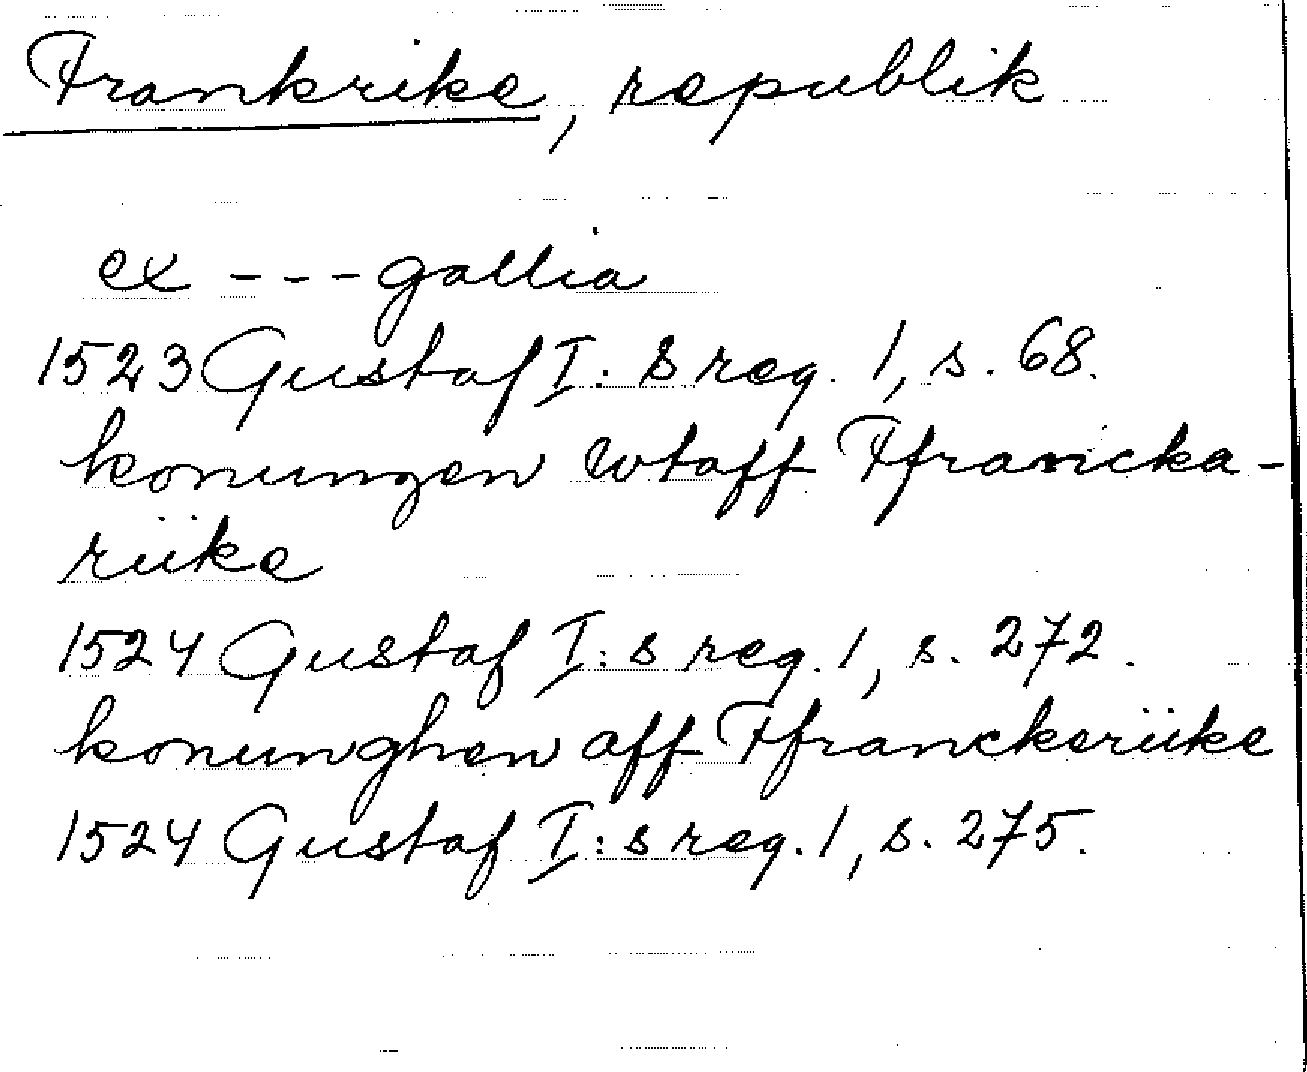 Frankrike, republik
ex --- gallia
1523 Gustaf I: s reg. 1, s. 68.
konungen wtaff Ffrancka-
riike
1524 Gustaf I: s reg. 1, s. 272.
konunghen aff Ffranckeriike
1524 Gustaf I: s reg. 1, s. 275.